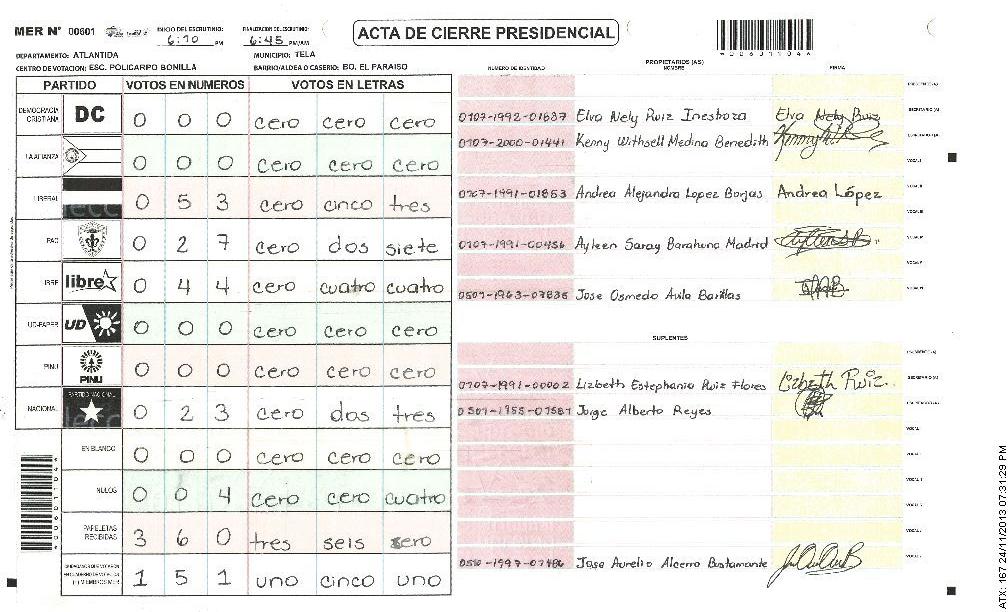 MER Nº 00601
INICIO DEL ESCRUTINIO: 6:10 PM
FINALIZACION DEL ESCRUTINIO: 6:45 PM/AM
ACTA DE CIERRE PRESIDENCIAL
DEPARTAMENTO: ATLANTIDA
MUNICIPIO: TELA
CENTRO DE VOTACION: ESC. POLICARPO BONILLA
BARRIO/ALDEA O CASERIO: BO. EL PARAISO
PARTIDO VOTOS EN NUMEROS VOTOS EN LETRAS
DEMOCRACIA CRISTIANA DC 0 0 0 cero cero cero
LA ALIANZA 0 0 0 cero cero cero
LIBERAL 0 5 3 cero cinco tres
PAC 0 2 7 cero dos siete
LIBRE libre 0 4 4 cero cuatro cuatro
UD-FAPER UD 0 0 0 cero cero cero
PINU PINU 0 0 0 cero cero cero
NACIONAL PARTIDO NACIONAL 0 2 3 cero dos tres
EN BLANCO 0 0 0 cero cero cero
NULOS 0 0 4 cero cero cuatro
PAPELETAS RECIBIDAS 3 6 0 tres seis sero
CIUDADANOS QUE VOTARON EN CUADERNO DE VOTACION (+) MIEMBROS MER 1 5 1 uno cinco uno
PROPIETARIOS (AS)
NUMERO DE IDENTIDAD NOMBRE FIRMA
0107-1992-01687 Elva Nely Ruiz Inestroza Elva Nely Ruiz
0107-2000-01441 Kenny Withsell Medina Benedith
0107-1991-01853 Andrea Alejandra Lopez Borjas Andrea López
0107-1991-00456 Ayleen Saray Barahona Madrid
0501-1963-07835 Jose Osmedo Avila Barillas
SUPLENTES
0107-1991-00002 Lizbeth Estephania Ruiz Flores Lizbeth Ruiz
0501-1955-07587 Jorge Alberto Reyes
Jose Aurelio Alcerro Bustamante
ATX: 167 24/11/2013 07:31:29 PM